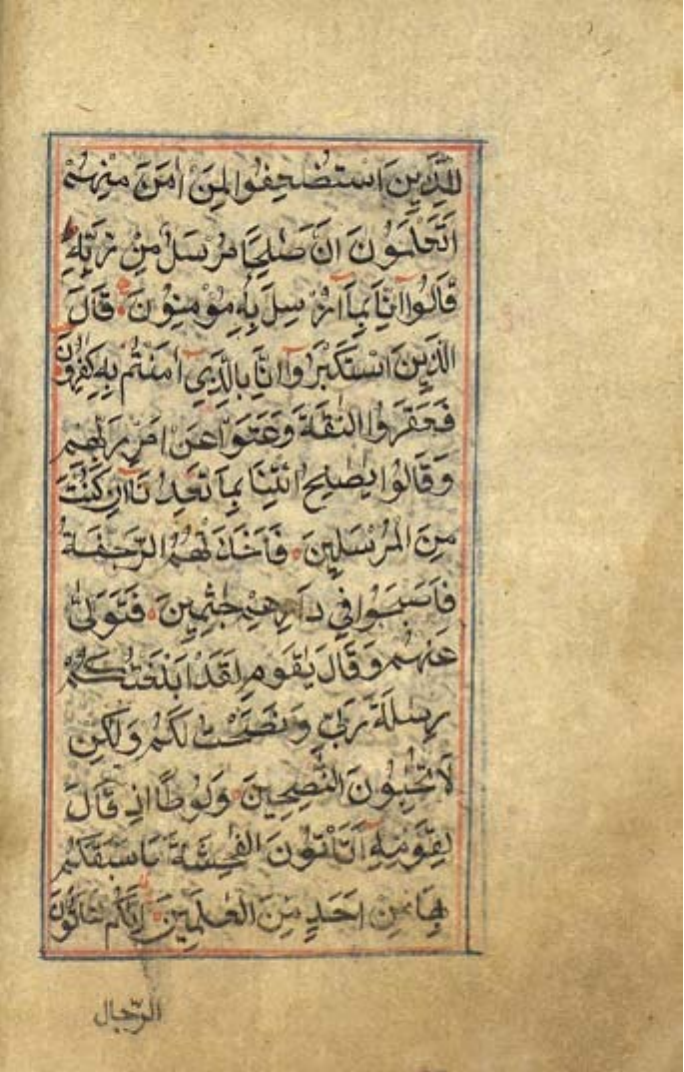 لِلَّذِينَ اسْتُضْعِفُوا لِمَنْ اٰمَنَ مِنْهُمْ
اَتَعْلَمُونَ اَنَّ صٰلِحًا مُرْسَلٌ مِنْ رَبِّهٖ
قَالُوا اِنَّا بِمَآ اُرْسِلَ بِهٖ مُؤْمِنُونَ قَالَ
الَّذِينَ اسْتَكْبَرُوا اِنَّا بِالَّذِىٓ اٰمَنْتُمْ بِهٖ كٰفِرُونَ
فَعَقَرُوا النَّاقَةَ وَعَتَوْا عَنْ اَمْرِ رَبِّهِمْ
وَقَالُوا يٰصٰلِحُ ائْتِنَا بِمَا تَعِدُنَآ اِنْ كُنْتَ
مِنَ الْمُرْسَلِينَ فَاَخَذَتْهُمُ الرَّجْفَةُ
فَاَصْبَحُوا فِي دَارِهِمْ جٰثِمِينَ فَتَوَلّٰى
عَنْهُمْ وَقَالَ يٰقَوْمِ لَقَدْ اَبْلَغْتُكُمْ
رِسٰلَةَ رَبِّي وَنَصَحْتُ لَكُمْ وَلٰكِنْ
لَا تُحِبُّونَ النّٰصِحِينَ وَلُوطًا اِذْ قَالَ
لِقَوْمِهٖٓ اَتَأْتُونَ الْفٰحِشَةَ مَا سَبَقَكُمْ
بِهَا مِنْ اَحَدٍ مِنَ الْعٰلَمِينَ اِنَّكُمْ لَتَأْتُونَ
الرّجال